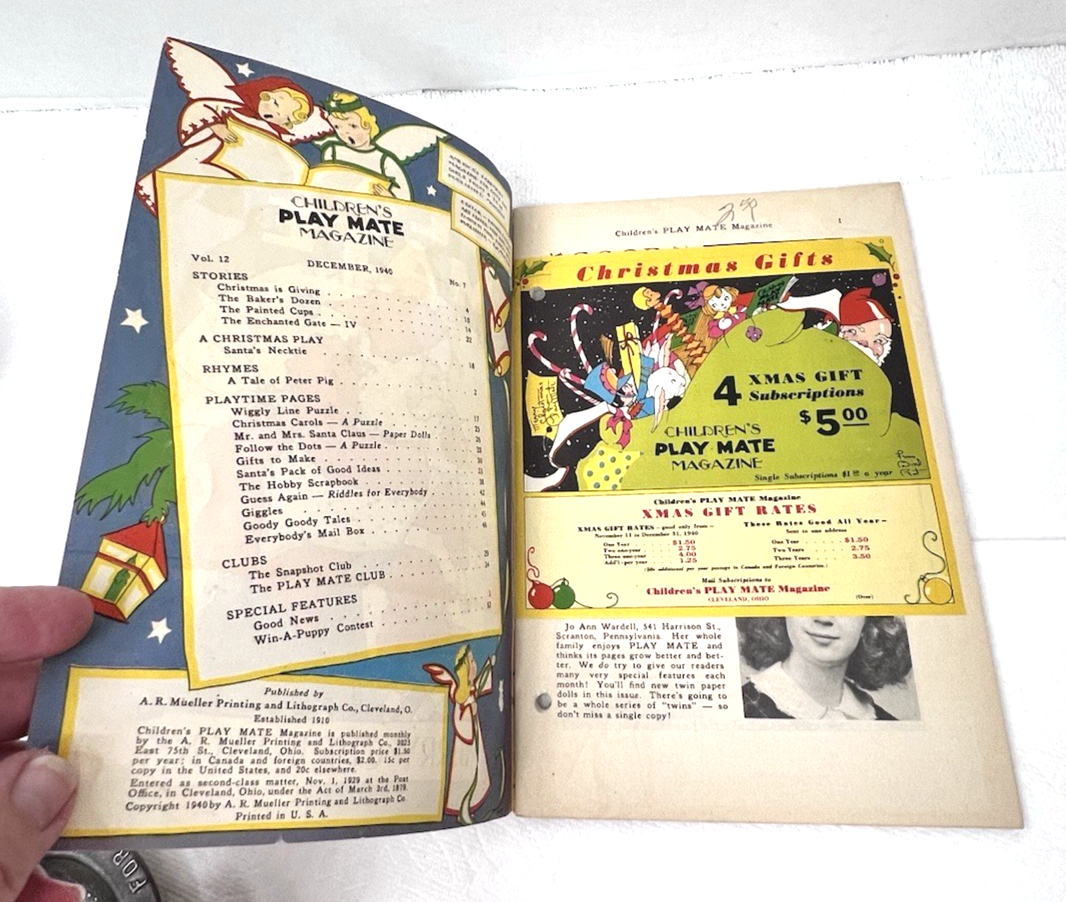 CHILDREN'S
PLAY MATE
MAGAZINE
Vol. 12 DECEMBER, 1940 No. 7
STORIES
Christmas is Giving
The Baker's Dozen 4
The Painted Cups 10
The Enchanted Gate — IV 14
22
A CHRISTMAS PLAY
Santa's Necktie 18
RHYMES
A Tale of Peter Pig 3
PLAYTIME PAGES
Wiggly Line Puzzle
Christmas Carols — A Puzzle 17
Mr. and Mrs. Santa Claus — Paper Dolls 25
Follow the Dots — A Puzzle
Gifts to Make
Santa's Pack of Good Ideas
The Hobby Scrapbook
Guess Again — Riddles for Everybody
Giggles
Goody Goody Tales
Everybody's Mail Box
CLUBS
The Snapshot Club
The PLAY MATE CLUB
SPECIAL FEATURES
Good News
Win-A-Puppy Contest
Published by
A. R. Mueller Printing and Lithograph Co., Cleveland, O.
Established 1910
Children's PLAY MATE Magazine is published monthly
by the A. R. Mueller Printing and Lithograph Co., 3025
East 75th St., Cleveland, Ohio. Subscription price $1.50
per year; in Canada and foreign countries, $2.00. 15c per
copy in the United States, and 20c elsewhere.
Entered as second-class matter, Nov. 1, 1929 at the Post
Office, in Cleveland, Ohio, under the Act of March 3rd, 1879.
Copyright 1940 by A. R. Mueller Printing and Lithograph Co.
Printed in U. S. A.
FOR
Children's PLAY MATE Magazine 1
Christmas Gifts
Merry
Christmas
4 XMAS GIFT
Subscriptions
$5.00
CHILDREN'S
PLAY MATE
MAGAZINE
Single Subscriptions $1.50 a year
Children's PLAY MATE Magazine
XMAS GIFT RATES
XMAS GIFT RATES — good only from —
November 11 to December 31, 1940
One Year $1.50
Two one-year 2.75
Three one-year 4.00
Add'l per year 1.25
These Rates Good All Year —
Sent to one address
One Year $1.50
Two Years 2.75
Three Years 3.50
(50c additional per year postage in Canada and Foreign Countries.)
Mail Subscriptions to
Children's PLAY MATE Magazine
CLEVELAND, OHIO (Over)
Jo Ann Wardell, 541 Harrison St.,
Scranton, Pennsylvania. Her whole
family enjoys PLAY MATE and
thinks its pages grow better and bet-
ter. We do try to give our readers
many very special features each
month! You'll find new twin paper
dolls in this issue. There's going to
be a whole series of "twins" — so
don't miss a single copy!